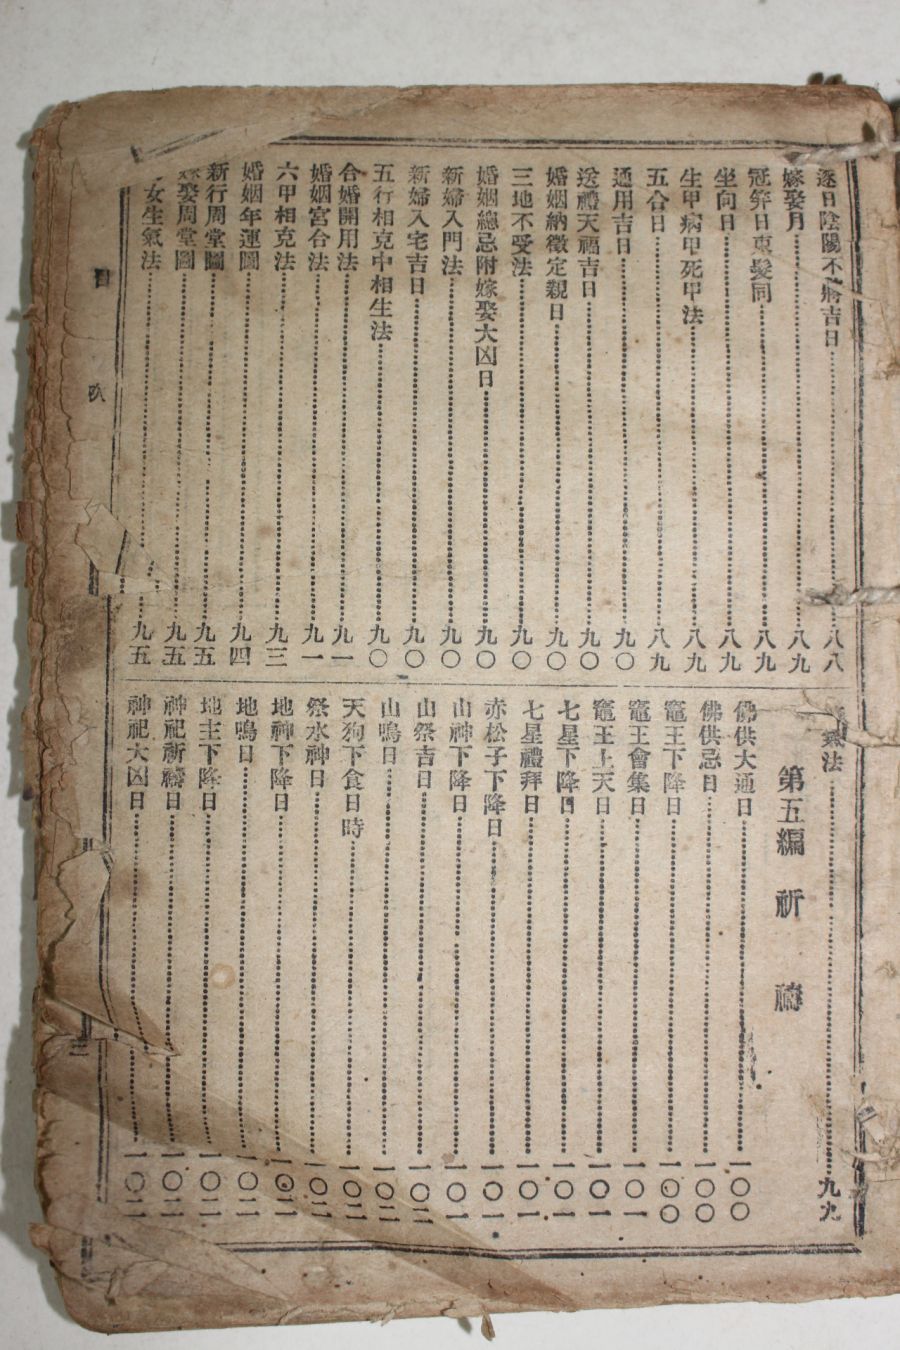 逐日陰陽不將吉日 八八
嫁娶月 八九
冠筓日束髮同 八九
坐向日 八九
生甲病甲死甲法 八九
五合日 八九
通用吉日 九〇
送禮天福吉日 九〇
婚姻納徵定親日 九〇
三地不受法 九〇
婚姻總忌附嫁娶大凶日 九〇
新婦入門法 九〇
新婦入宅吉日 九〇
五行相克中相生法 九〇
合婚開用法 九一
婚姻宮合法 九一
六甲相克法 九三
婚姻年運圖 九四
新行周堂圖 九五
娶周堂圖 九五
女生氣法 九五
法 九九
第五編 祈禱
佛供大通日 一〇〇
佛供忌日 一〇〇
竈王下降日 一〇〇
竈王會集日 一〇一
竈王上天日 一〇一
七星下降日 一〇一
七星禮拜日 一〇一
赤松子下降日 一〇一
山神下降日 一〇一
山祭吉日 一〇二
山鳴日 一〇二
天狗下食日時 一〇二
祭水神日 一〇二
地神下降日 一〇二
地鳴日 一〇二
地主下降日 一〇二
神祀祈禱日 一〇二
神祀大凶日 一〇二
目 次
三